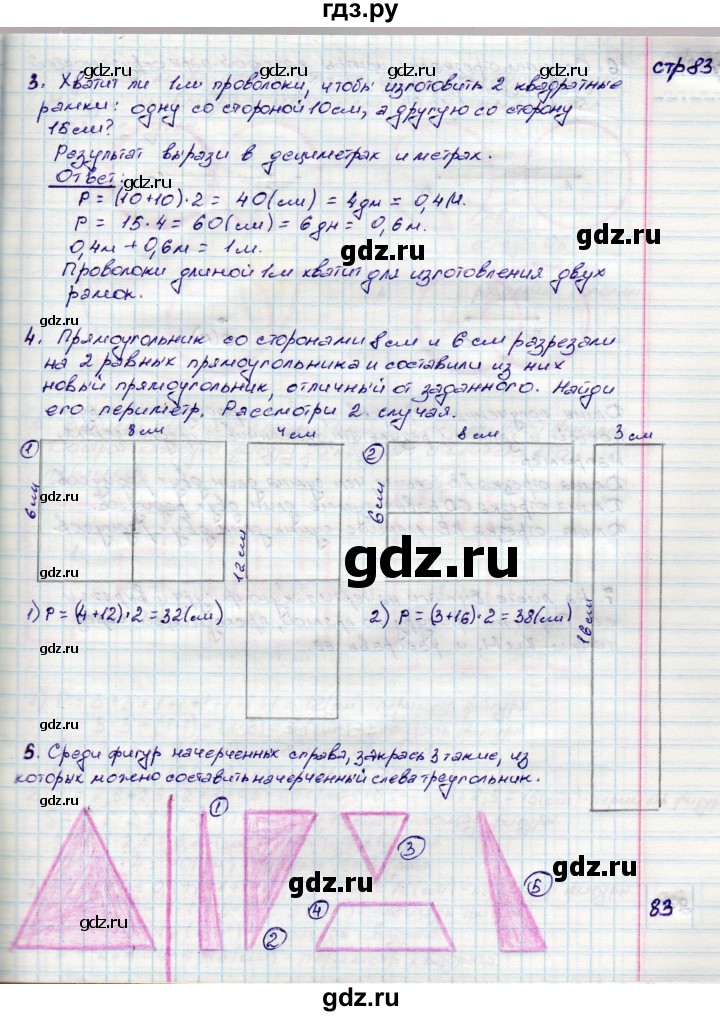 гдз.ру
стр 83
3. Хватит ли 1м проволоки, чтобы изготовить 2 квадратные
рамки: одну со стороной 10см, а другую со сторону
15см?
Результат вырази в дециметрах и метрах.
Ответ:
P = (10+10)·2 = 40(см) = 4дм = 0,4м.
P = 15·4 = 60(см) = 6дм = 0,6м.
0,4м + 0,6м = 1м.
gdz.ru
gdz.ru
Проволоки длиной 1м хватит для изготовления двух
рамок.
gdz.ru
4. Прямоугольник со сторонами 8см и 6см разрезали
на 2 равных прямоугольника и составили из них
новый прямоугольник, отличный от заданного. Найди
его периметр. Рассмотри 2 случая.
1 8см 4см 2 8см 3см
6см 12см 6см 16см
gdz.ru
gdz.ru
1) P = (4+12)·2 = 32(см) 2) P = (3+16)·2 = 38(см)
gdz.ru
5. Среди фигур начерченных справа, закрась 3 такие, из
которых можно составить начерченный слева треугольник.
gdz.ru
1 2 3 4 5
gdz.ru
gdz.ru
gdz.ru
83
gdz.ru
gdz.ru